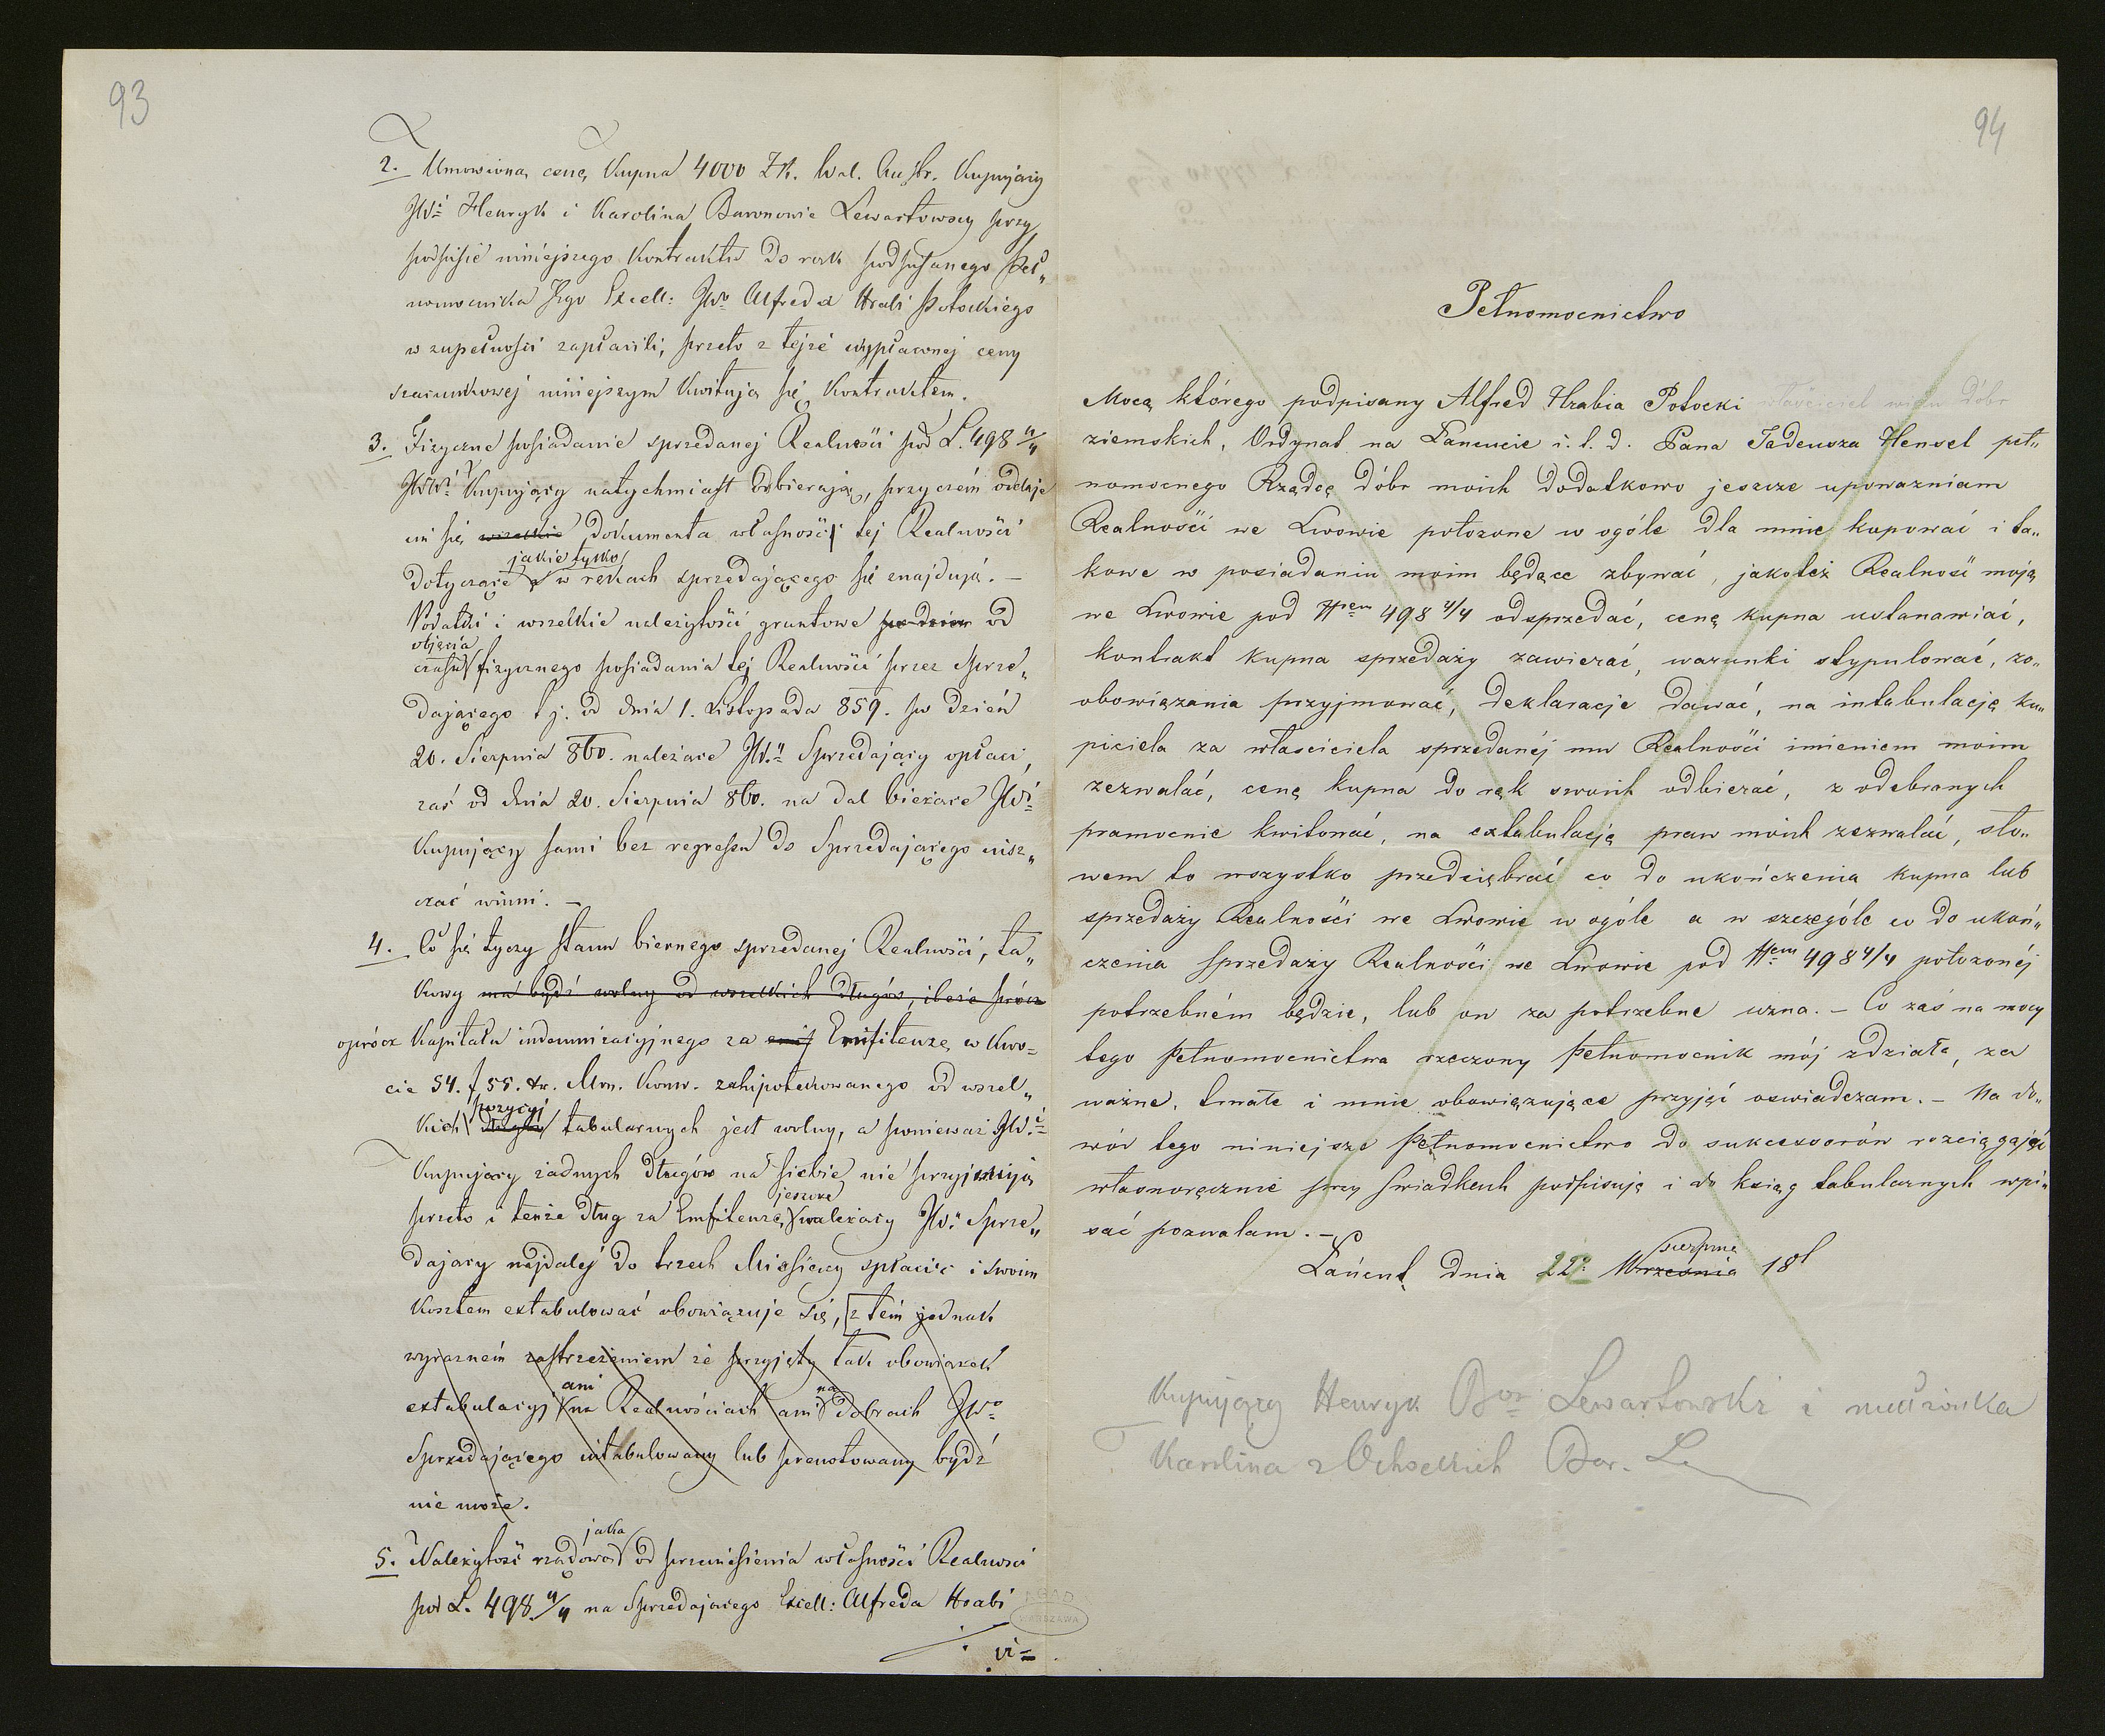 93
2. Umowioną cenę Kupna 4000 Zł. Wal. Austr. Kupujący
JWi Henryk i Karolina Baronowie Lewartowscy przy
podpisie niniejszego Kontraktu do rąk podpisanego Peł„
nomocnika Jego Excell: JWo Alfreda Hrabi Potockiego
w zupełności zapłacili, przeto z tejże wypłaconej ceny
szacunkowej niniejszym Kwitują się Kontraktem.
3. Fizyczne posiadanie sprzedanej Realności pod L. 498 4/4
JWWi Kupujący natychmiast odbierają, przyczem oddaje
im się wszelkie Dokumenta własności tej Realności
jakie tylko
dotyczące w rękach sprzedającego się znajdują. —
Podatki i wszelkie należytości gruntowe po dzien od
objęcia
czasu fizycznego posiadania tej Realności przez Sprze„
dającego t j. od dnia 1. Listopada 859. po dzień
20. Sierpnia 860. należące JW. Sprzedający opłaci,
zaś od dnia 20. Sierpnia 860. na dal bieżące JWi
Kupujący sami bez regressu do Sprzedającego uisz„
czać winni. —
4. Co się tyczy stanu biernego sprzedanej Realności, ta„
Kowy ma bydź wolny od wszelkich długów, ileże prócz
oprócz Kapitału indemnizacyjnego za Emfiteuzę w Kwo=
cie 54. f 55. xr. Mon. Konw. zahipotekowanego od wszel„
pozycyj
Kich długów tabularnych jest wolny, a ponieważ JW.i
Kupujący żadnych długów na siebie nie przyjmują
jeszcze
przeto i tenże dług za Emfiteuzę należący JW. Sprze„
dający najdalej do trzech Miesięcy spłacić i swoim
Kosztem extabulować obowiązuje się, z tém jednak
wyraznem zastrzeżeniem że przyjęty tak obowiązek
ani na
extabulacyj na Realnościach ani dobrach JWo
Sprzedającego intabulowany lub prenotowany bydź
nie może.
jaka
5. Należytość rządowa od przeniesienia własności Realnosci
pod L. 498 4/4 na Sprzedającego Excell: Alfreda Hrabi
94
Pełnomocnictwo
Mocą którego podpisany Alfred Hrabia Potocki właściciel wielu dóbr
ziemskich, Ordynat na Łancucie i. t. d. Pana Tadeusza Hensel peł„
nomocnego Rządcę dóbr moich dodatkowo jeszcze upoważniam
Realności we Lwowie położone w ogóle dla mnie kupować i ta„
kowe w posiadaniu moim będące zbywać, jakoteż Realność moją
we Lwowie pod Nrem 498 4/4 odsprzedać, cenę kupna ustanawiać,
kontrakt kupna sprzedaży zawierać, warunki stypulować, zo„
obowiązania przyjmować, deklaracje dawać, na intabulacją ku„
piciela za własciciela sprzedanéj mu Realności imieniem moim
zezwalać, cenę kupna do rąk swoich odbierać, z odebranych
pramocnie kwitować, na extabulacją praw moich zezwalać, sło„
wem to wszystko przedsiębrać co do ukończenia kupna lub
sprzedaży Realności we Lwowie w ogóle a w szczególe co do ukoń„
czenia sprzedaży Realności we Lwowie pod Nrem 498 4/4 położonéj
potrzebném będzie, lub on za potrzebne uzna. — Co zaś na mocy
tego Pełnomocnictwa rzeczony Pełnomocnik mój zdziała, za
ważne, trwałe i mnie obowiązujące przyjąć oswiadczam. — Na do„
wód tego niniejsze Pełnomocnictwo do sukcessorów rozciągając
własnoręcznie przy świadkach podpisuję i do ksiąg tabularnych wpi„
sać pozwalam. —
sierpnia
Łańcut dnia 22o Września 18
Kupujący Henryk Bar Lewartowski i małżonka
Karolina z Ochockich Bar. L.
AGAD
WARSZAWA